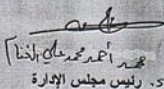 محمد أحمد محمد علي الخشاب
د. رئيس مجلس الإدارة